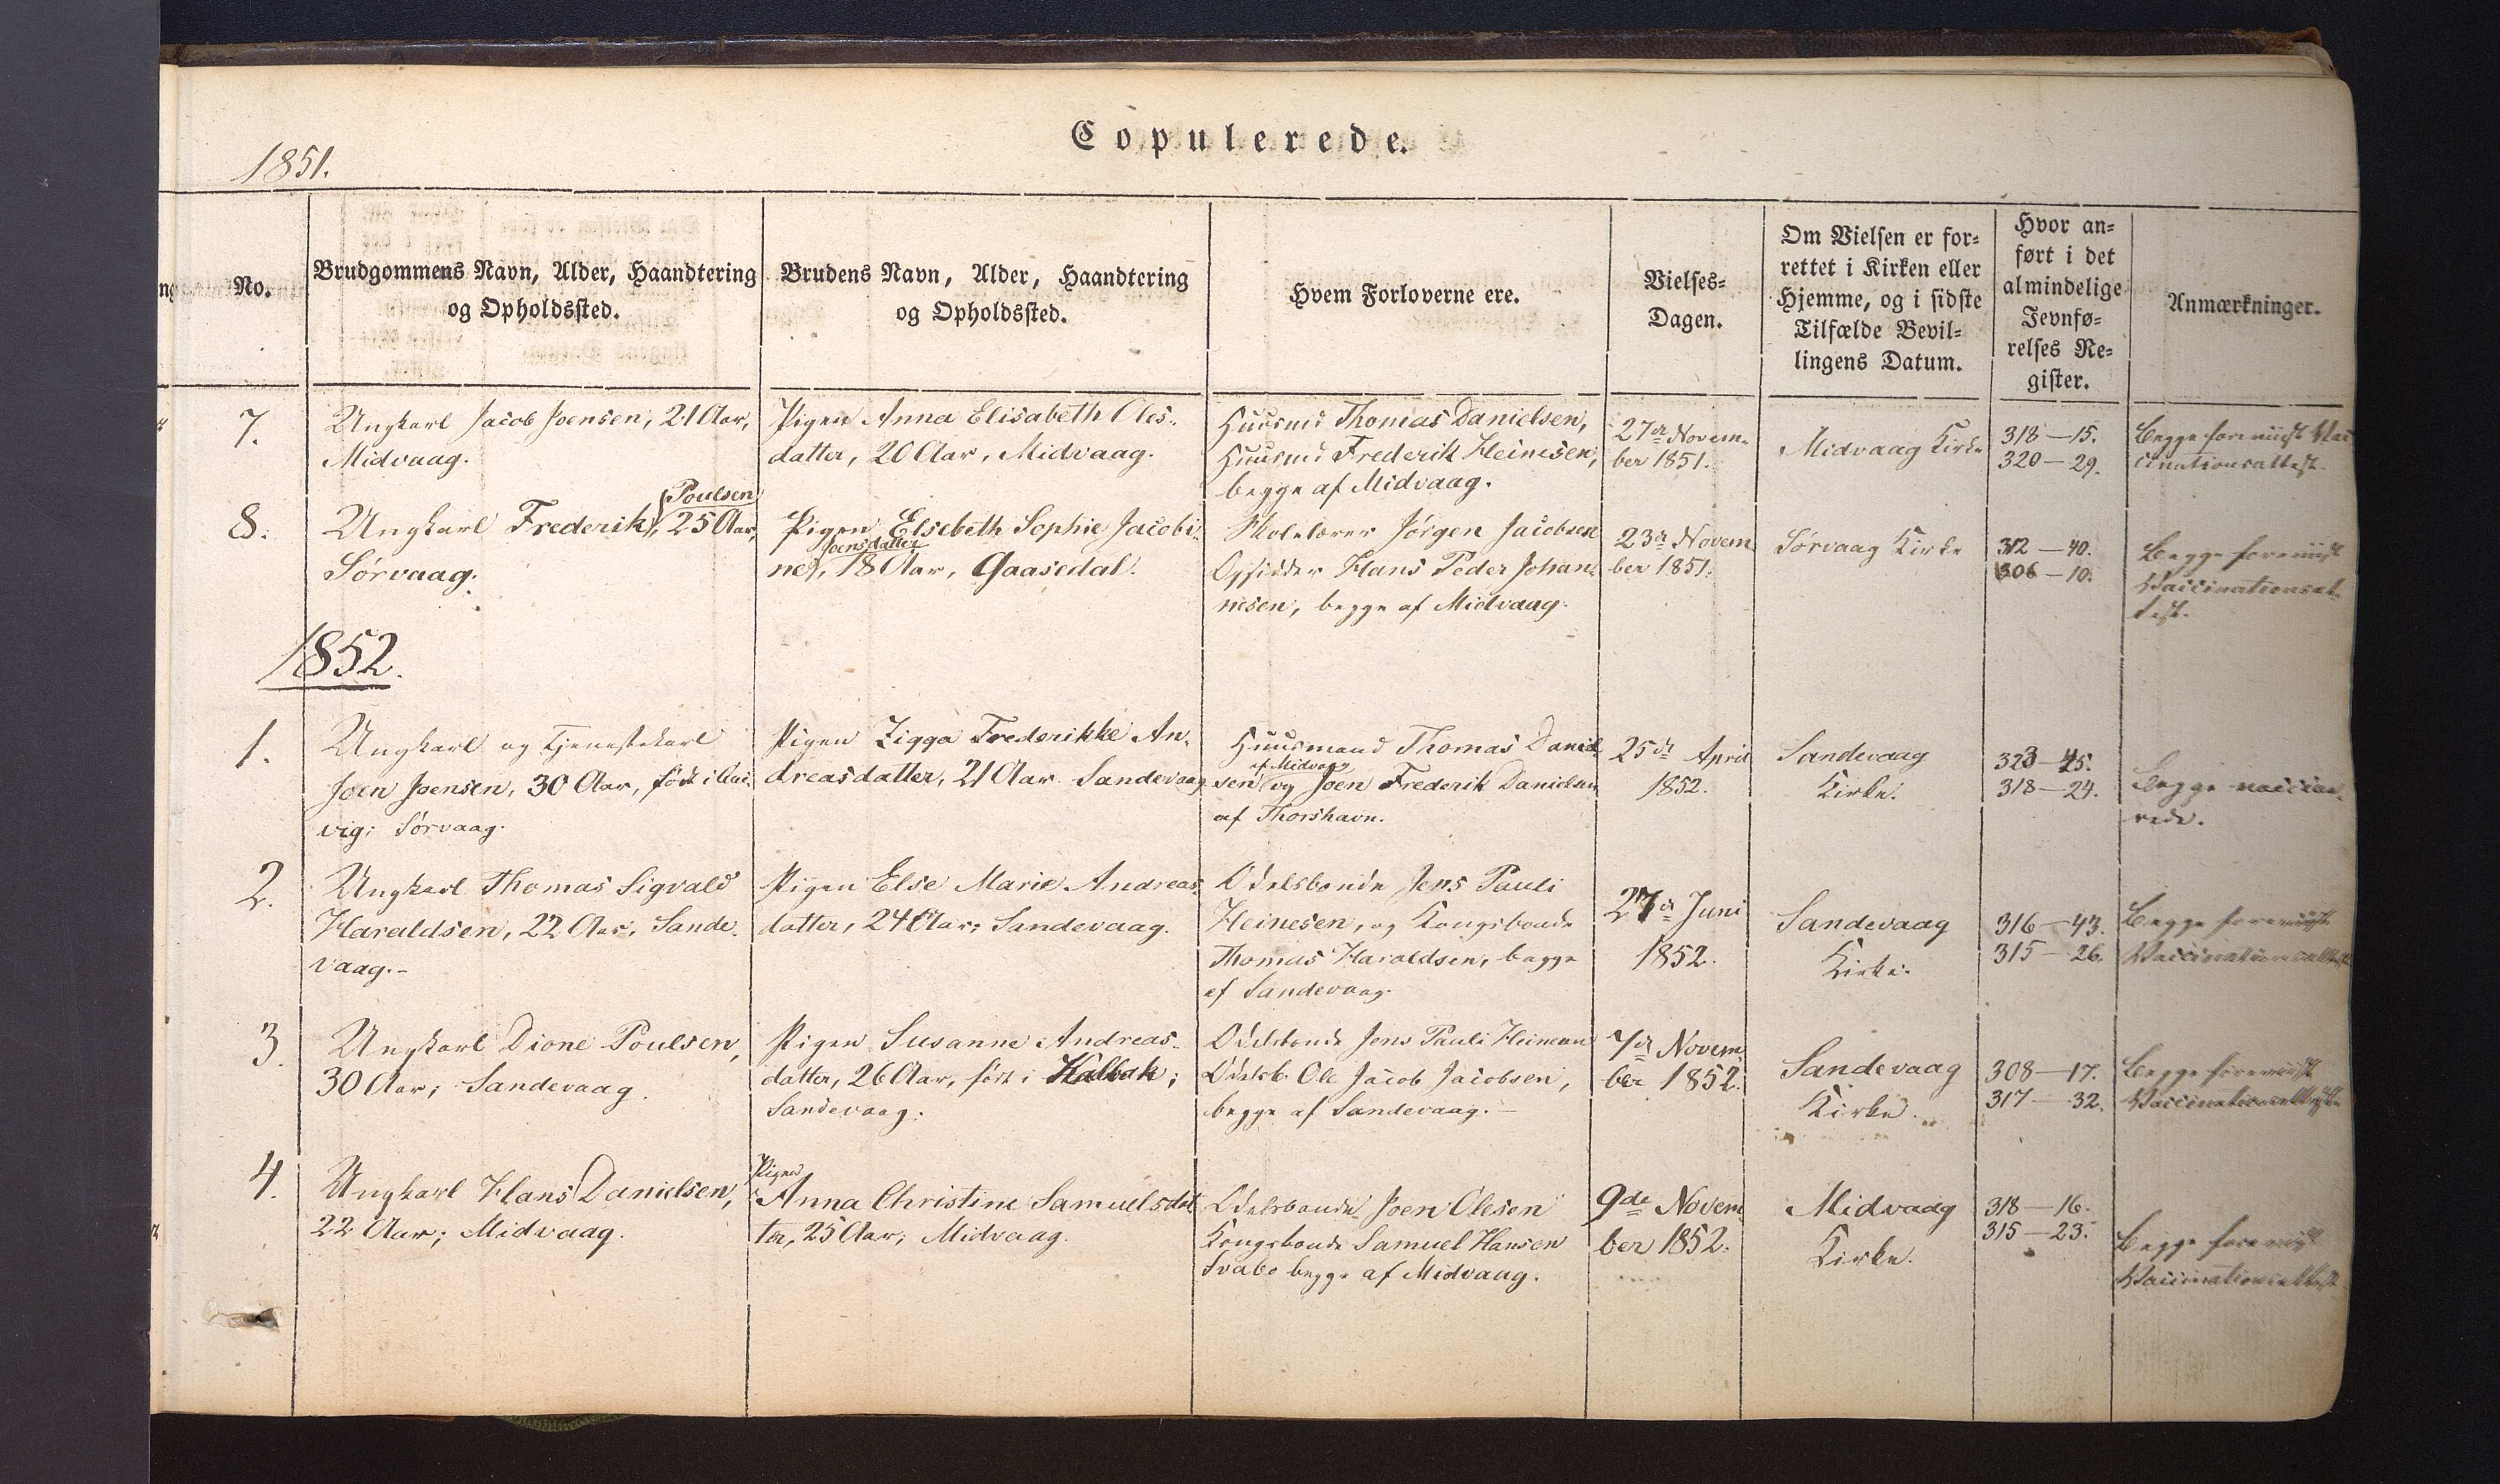 Copulerede.
1851.
No.
Brudgommens Navn, Alder, Haandtering
og Opholdssted.
Brudens Navn, Alder, Haandtering
og Opholdssted.
Hvem Forloverne ere.
Vielses-
Dagen.
Om Vielsen er for-
rettet i Kirken eller
Hjemme, og i sidste
Tilfælde Bevil-
lingens Datum.
Hvor an-
ført i det
almindelige
Jevnfø-
relses Re-
gister.
Anmærkninger.
7.
Ungkarl Jacob Joensen, 21 Aar,
Midvaag.
Pigen Anna Elisabeth Oles-
datter, 20 Aar, Midvaag.
Huusmd Thomas Danielsen,
Huusmd Frederik Heinesen,
begge af Midvaag.
27de Novem-
ber 1851.
Midvaag Kirke
318 — 15.
320 — 29.
Begge foreviist Vac
cinationsattest.
8.
Poulsen
Ungkarl Frederik, 25 Aar,
Sørvaag.
Pigen Elsebeth Sophie Jacobi-
Joensdatter
ne, 18 Aar, Gaasedal.
Skolelærer Jørgen Jacobsen
Opsidder Hans Peder Johan-
nesen, begge af Midvaag.
23de Novem
ber 1851.
Sørvaag Kirke
312 — 40.
306 — 10.
Begge foreviist
Vaccinationsat-
test.
1852.
1.
Ungkarl og Tjenestekarl
Joen Joensen, 30 Aar, født i
vig; Sørvaag.
Pigen Zigga Frederikke An-
dreasdatter, 21 Aar Sandevaag
Huusmand Thomas Daniel
af Midvaag
sen og Joen Frederik Danielsen
af Thorshavn.
25de April
1852.
Sandevaag
Kirke.
323 — 45.
318 — 24.
Begge vaccine-
rede.
2.
Ungkarl Thomas Sigvald
Haraldsen, 22 Aar, Sande-
vaag.-
Pigen Else Marie Andreas-
datter, 24 Aar; Sandevaag.
Odelsbonde Jens Pauli
Heinesen, og Kongsbonde
Thomas Haraldsen, begge
af Sandevaag.
27de Juni
1852.
Sandevaag
Kirke.
316 — 43.
315 — 26.
Begge foreviist
Vaccinationsattest
3.
Ungkarl Dione Poulsen,
30 Aar; Sandevaag.
Pigen Susanne Andreas-
datter, 26 Aar, født i Kalbak;
Sandevaag.
Odelsbonde Jens Pauli Heinesen
Odelsb. Ole Jacob Jacobsen,
begge af Sandevaag. —
7de Novem
ber 1852.
Sandevaag
Kirke.
308 — 17.
317 — 32.
Begge foreviist
Vaccinationsattest
4.
Ungkarl Hans Danielsen,
22 Aar; Midvaag.
Pigen
Anna Christine Samuelsdat
ter, 25 Aar; Midvaag.
Odelsbonde Joen Olesen
Kongsbonde Samuel Hansen
Svabo begge af Midvaag.
9de Novem
ber 1852.
Midvaag
Kirke.
318 — 16.
315 — 23.
Begge foreviist
Vaccinationsattest